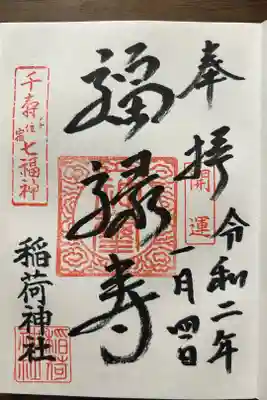 奉拝
開運
令和二年
一月四日
福禄寿
千寿七福神
稲荷神社